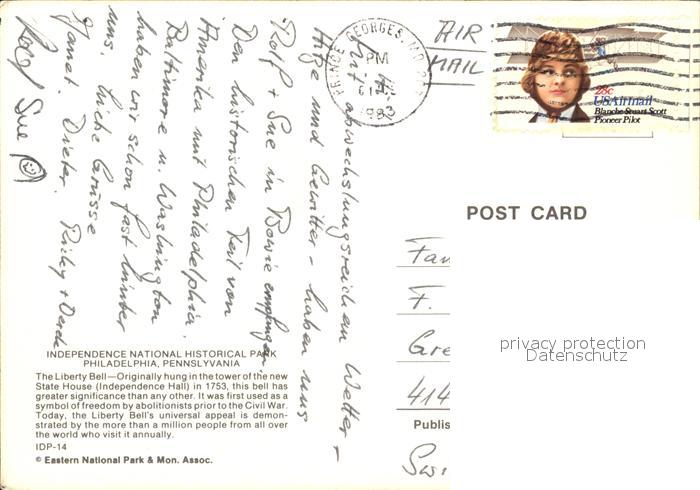 Mit abwechslungsreichem Wetter -
Hitze und Gewitter - haben uns
Rolf + Sue in Bowie empfangen.
Den historischen Teil von
Amerika mit Philadelphia,
Baltimore u. Washington
haben wir schon fast hinter
uns. Liebe Grüsse
Janet. Dieter. Ricky + Derek
Rolf Sue
PRINCE GEORGES, MD
PM
1983
AIR
MAIL
28c
USAirmail
Blanche Stuart Scott
Pioneer Pilot
POST CARD
Fam
F.
Gre
414
Publis
privacy protection
Datenschutz
INDEPENDENCE NATIONAL HISTORICAL PARK
PHILADELPHIA, PENNSLYVANIA
The Liberty Bell—Originally hung in the tower of the new
State House (Independence Hall) in 1753, this bell has
greater significance than any other. It was first used as a
symbol of freedom by abolitionists prior to the Civil War.
Today, the Liberty Bell's universal appeal is demon-
strated by the more than a million people from all over
the world who visit it annually.
IDP-14
© Eastern National Park & Mon. Assoc.